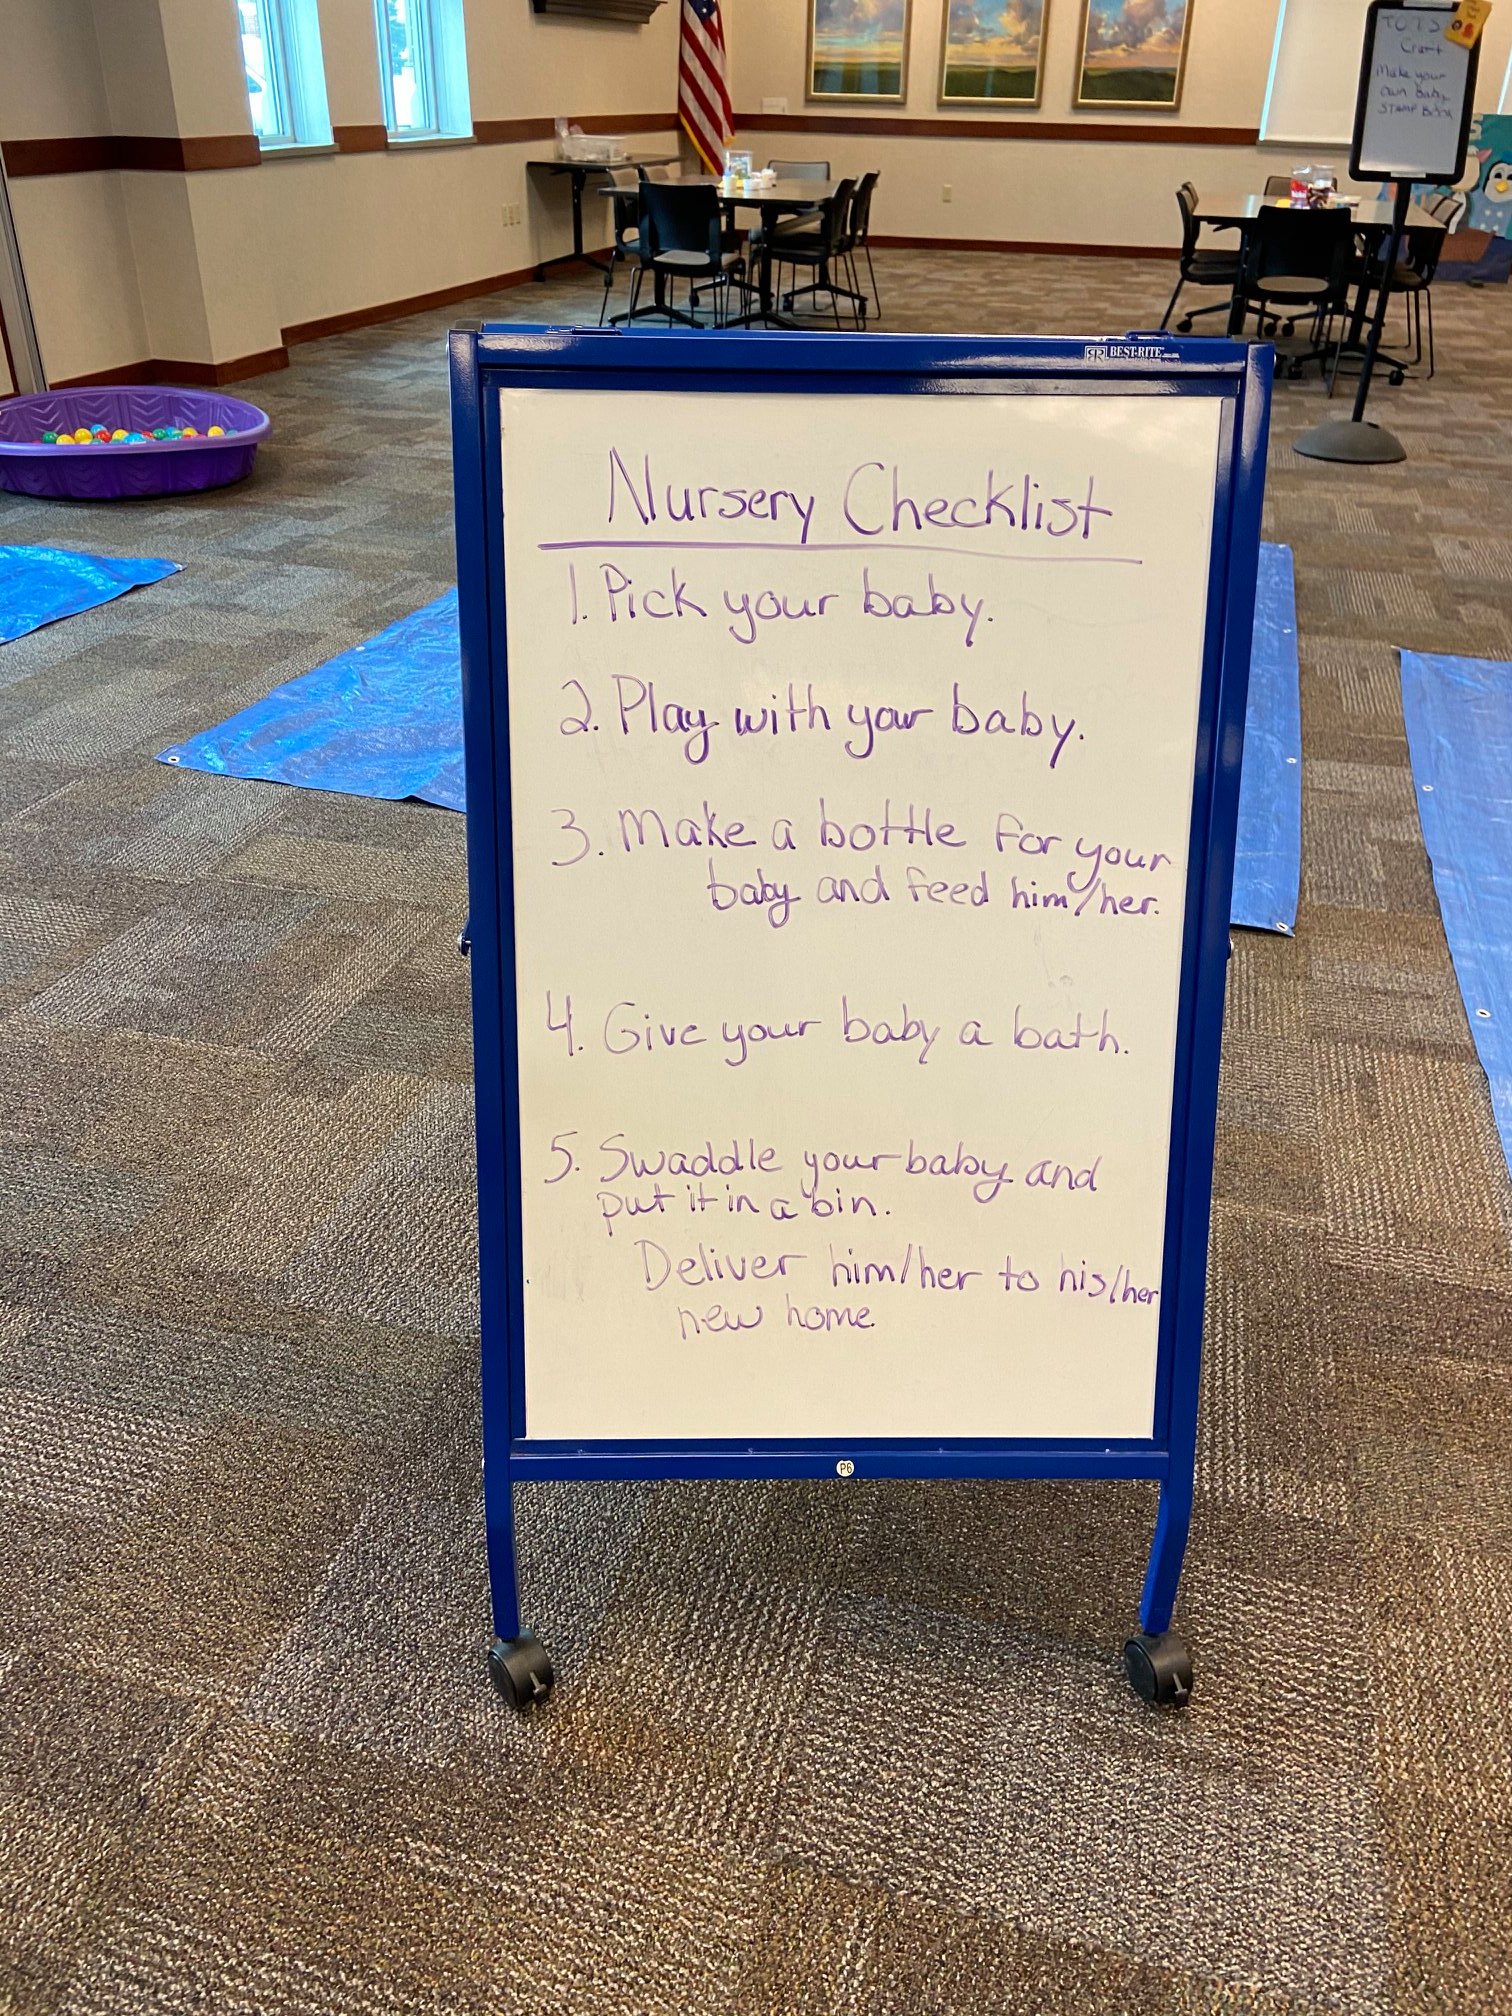 TOTS
Craft
Make your
own baby
STAMP Book
BEST-RITE
Nursery Checklist
1. Pick your baby.
2. Play with your baby.
3. Make a bottle for your
baby and feed him/her.
4. Give your baby a bath.
5. Swaddle your baby and
put it in a bin.
Deliver him/her to his/her
new home.
P6